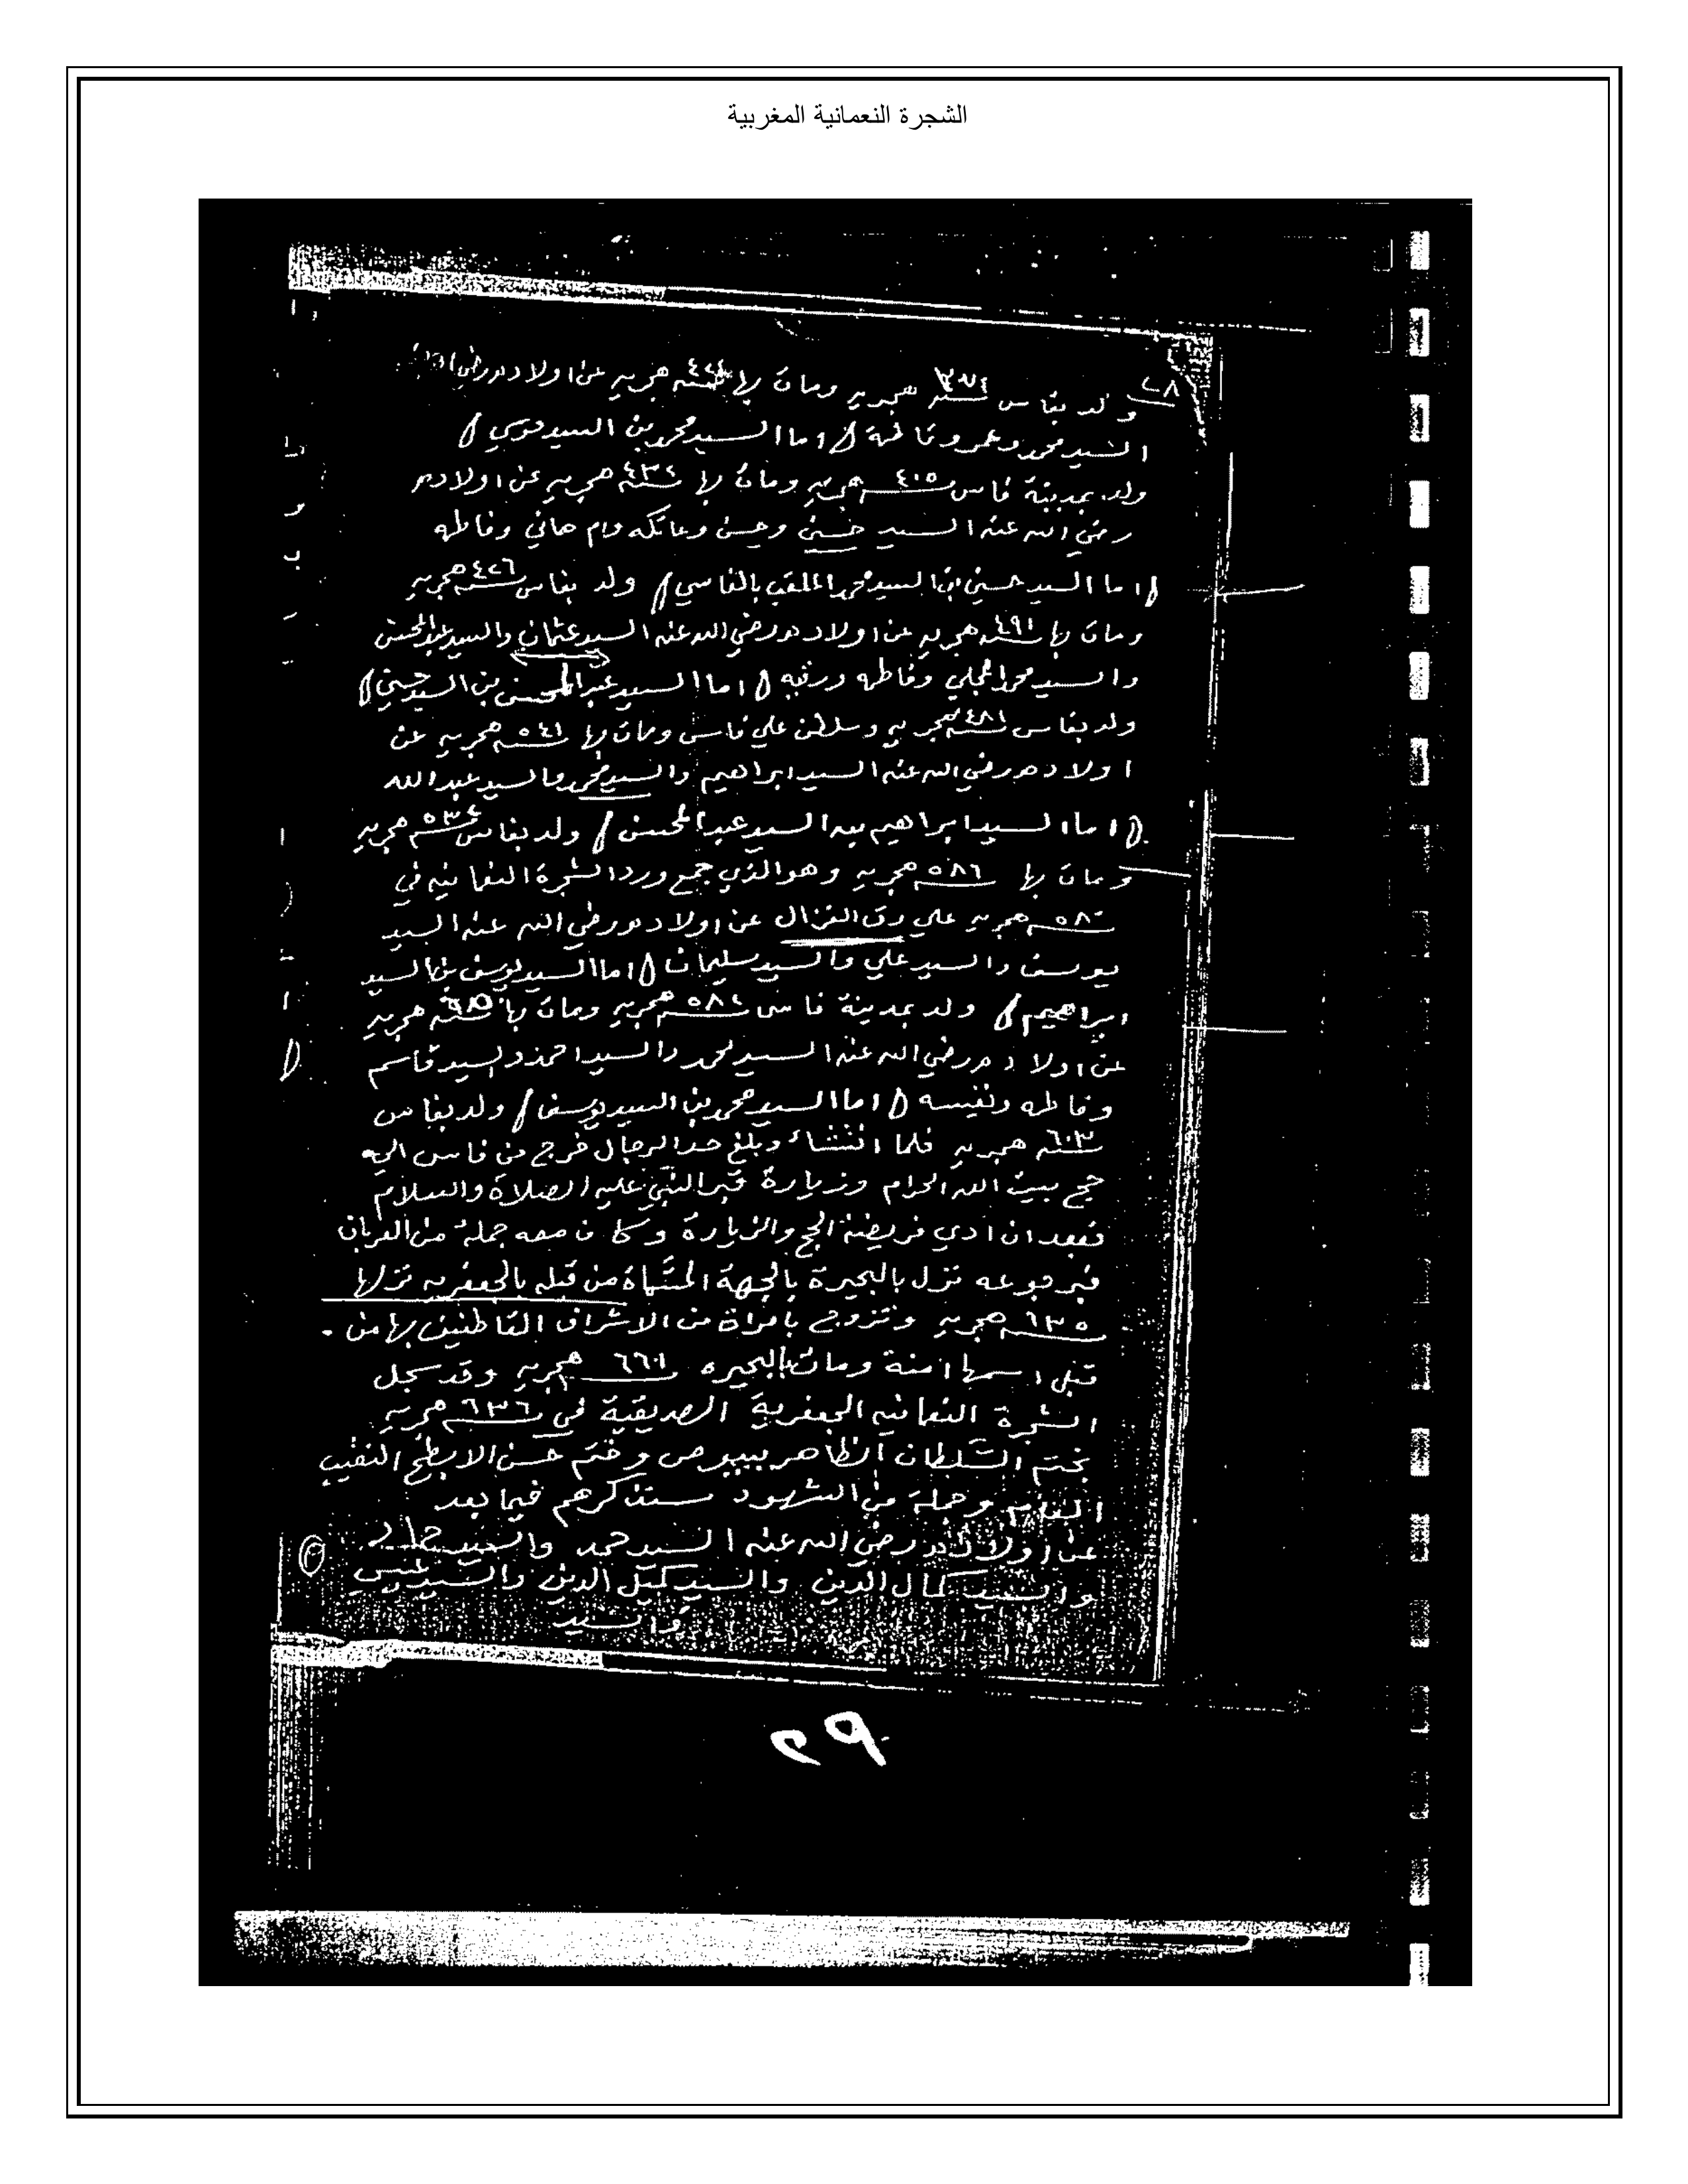 الشجرة النعمانية المغربية
٢٨
ولد بفاس سنة هجريه ومات بها سنة هجريه عن اولاده
السيد محمد وعمر وفاطمة ( اما السيد محمد بن السيد موسي )
ولد بمدينة فاس سنة ٤٠٥ هجريه ومات بها سنة ٤٣٢ هجريه عن اولاده
رضي الله عنه السيد حسني وحسن وعاتكه وام هاني وفاطمه
( اما السيد حسني ابن السيد محمد الملقب بالفاسي ) ولد بفاس سنة ٤٢٦ هجريه
ومات بها سنة ٤٩١ هجريه عن اولاده رضي الله عنه السيد عثمان والسيد عبد المحسن
والسيد محمد المجلي وفاطمه ورقيه ( اما السيد عبد المحسن بن السيد حسني )
ولد بفاس سنة ٤٨١ هجريه وسلطن علي فاس ومات بها سنة ٥٤١ هجريه عن
اولاده رضي الله عنه السيد ابراهيم والسيد محمد والسيد عبد الله
( اما السيد ابراهيم بن السيد عبد المحسن ) ولد بفاس سنة ٥٣٤ هجريه
ومات بها سنة ٥٨٦ هجريه وهو الذي جمع ورد الشجرة النعمانيه في
سنة ٥٨٠ هجريه علي رق الغزال عن اولاده رضي الله عنه السيد
يوسف والسيد علي والسيد سليمان ( اما السيد يوسف بن السيد
ابراهيم ) ولد بمدينة فاس سنة ٥٨٢ هجريه ومات بها سنة هجريه
عن اولاده رضي الله عنه السيد محمد والسيد احمد والسيد قاسم
وفاطمه ونفيسه ( اما السيد محمد بن السيد يوسف ) ولد بفاس
سنة ٦٠٣ هجريه فلما انتشاء وبلغ حد الرجال خرج من فاس الي
حج بيت الله الحرام وزيارة قبر النبي عليه الصلاة والسلام
فبعد ان ادي فريضة الحج والزيارة وكان معه جملة من العربان
فبرجوعه نزل بالبحيرة بالجهة المسماة من قبله بالجعفريه نزلها
سنة ٦٣٥ هجريه وتزوج بامراة من الاشراف القاطنين بها من
قبل اسمها امنة ومات بالبحيره سنة ٦٦١ هجريه وقد سجل
الشجرة النعمانيه الجعفرية الصديقية في سنة ٦٣٦ هجريه
بختم السلطان الظاهر بيبرص وختم حسن الابطح النقيب
العام وجملة من الشهود سنذكرهم فيما بعد
عن اولاده رضي الله عنه السيد حمد والسيد حماد
والسيد كمال الدين والسيد كميل الدين والسيد خميس
والسيد
٢٩